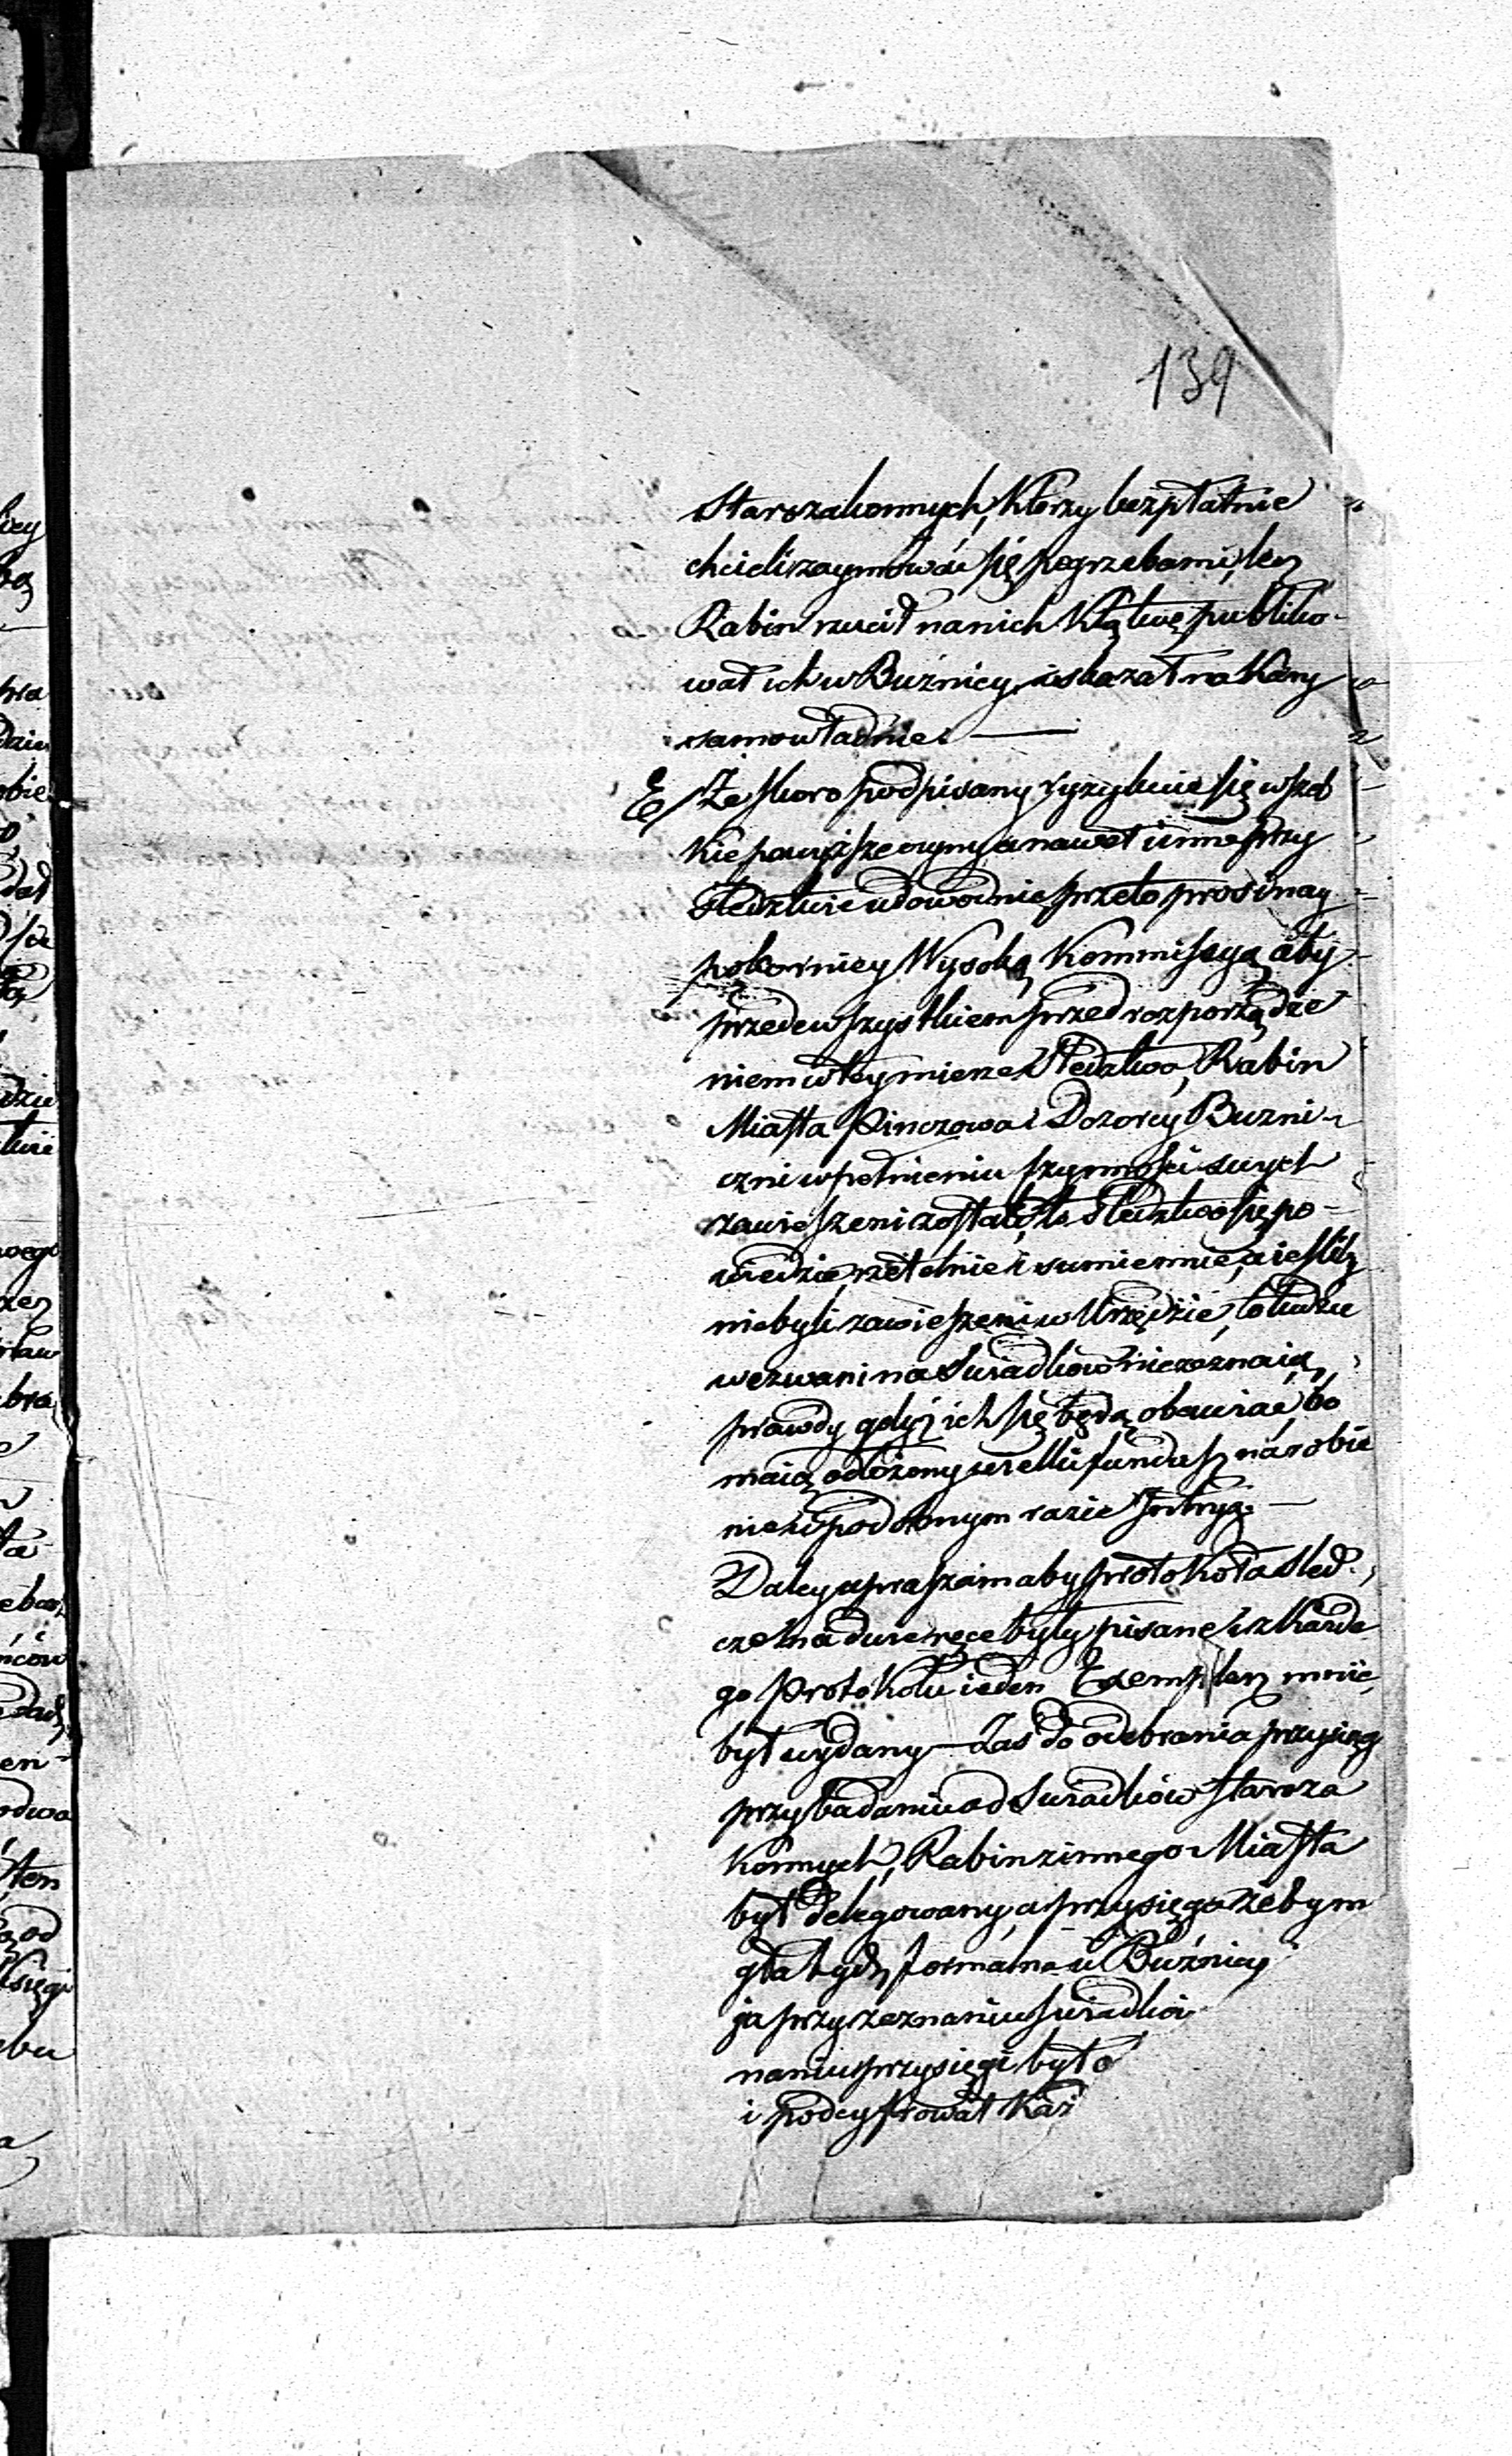 139
Starozakonnych, którzy bezpłatnie
chcieli zaymować się pogrzebami, lecz
Rabin rzucił na nich Klątwę, publiko-
wał ich w Buźnicy, i skazał na Kary
samowładnie. —
E/ Że skoro podpisany ryzykuie się wszel
kie powyższe czyny a nawet inne przy
Sledztwie udowodnić przeto prosi nay
pokorniey Wysoką Kommissyą aby
przedewszystkiem przed rozporządze
niem w tey mierze Sledztwa, Rabin
Miasta Pinczowa i Dozorcy Buzni-
czni w pełnieniu czynności swych
zawieszeni zostali, to Sledztwo się po-
wiedzie rzetelnie i sumiennie, a iesliby
niebyli zawieszeni w Urzędzie, to ludzie
wezwani na Swiadków niezeznaią
prawdy gdyż ich się będą obawiać, bo
maią odłożony wielki fundusz na robie
nie w podobnym razie Intryg. —
Daley upraszam aby protokoła Sled-
cze na dwie ręce były pisane i z każde
go protokołu ieden Exemplarz mnie
był wydany — Zaś do odebrania przysięg
przy badaniu od Swiadków Staroza
konnych, Rabin z innego Miasta
był delegowany, a przysięga żeby m
gła bydź formalna w Buźnicy
ja przy zeznaniu swiadków
naniu przysięgi był o
i podcyfrował Każ